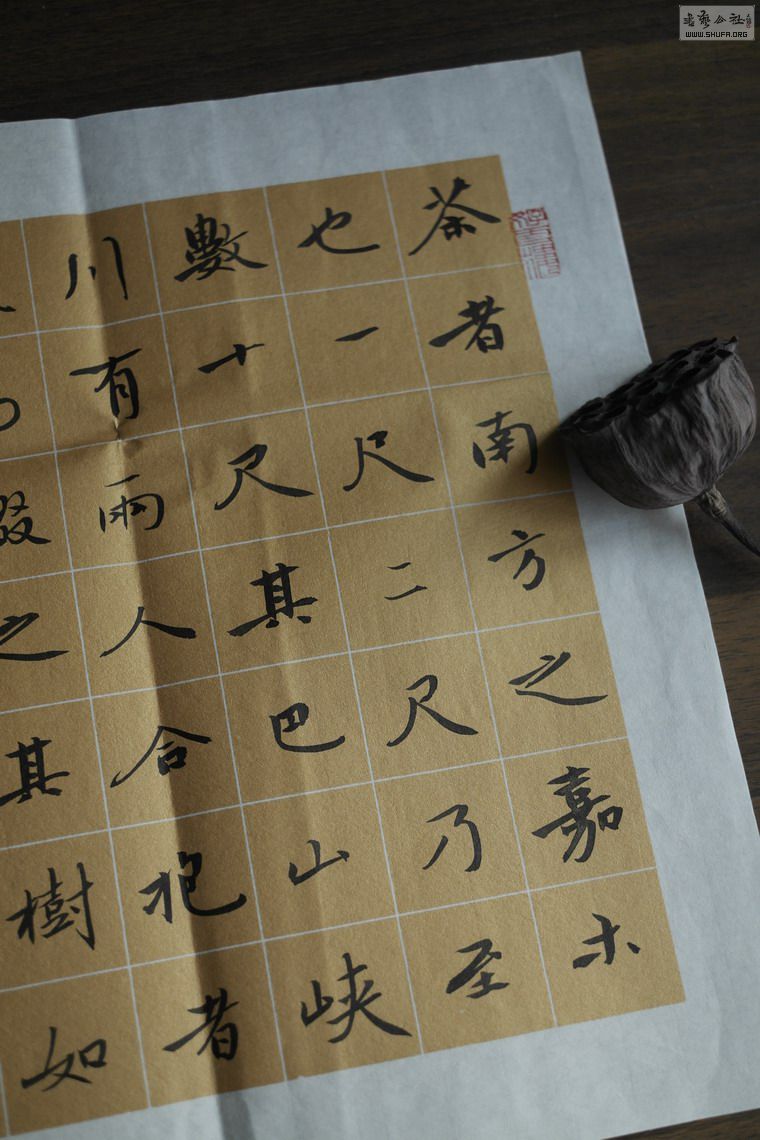 茶者南方之嘉木
也一尺二尺乃至
數十尺其巴山峽
川有兩人合抱者
掇之其樹如
書藝公社
WWW.SHUFA.ORG